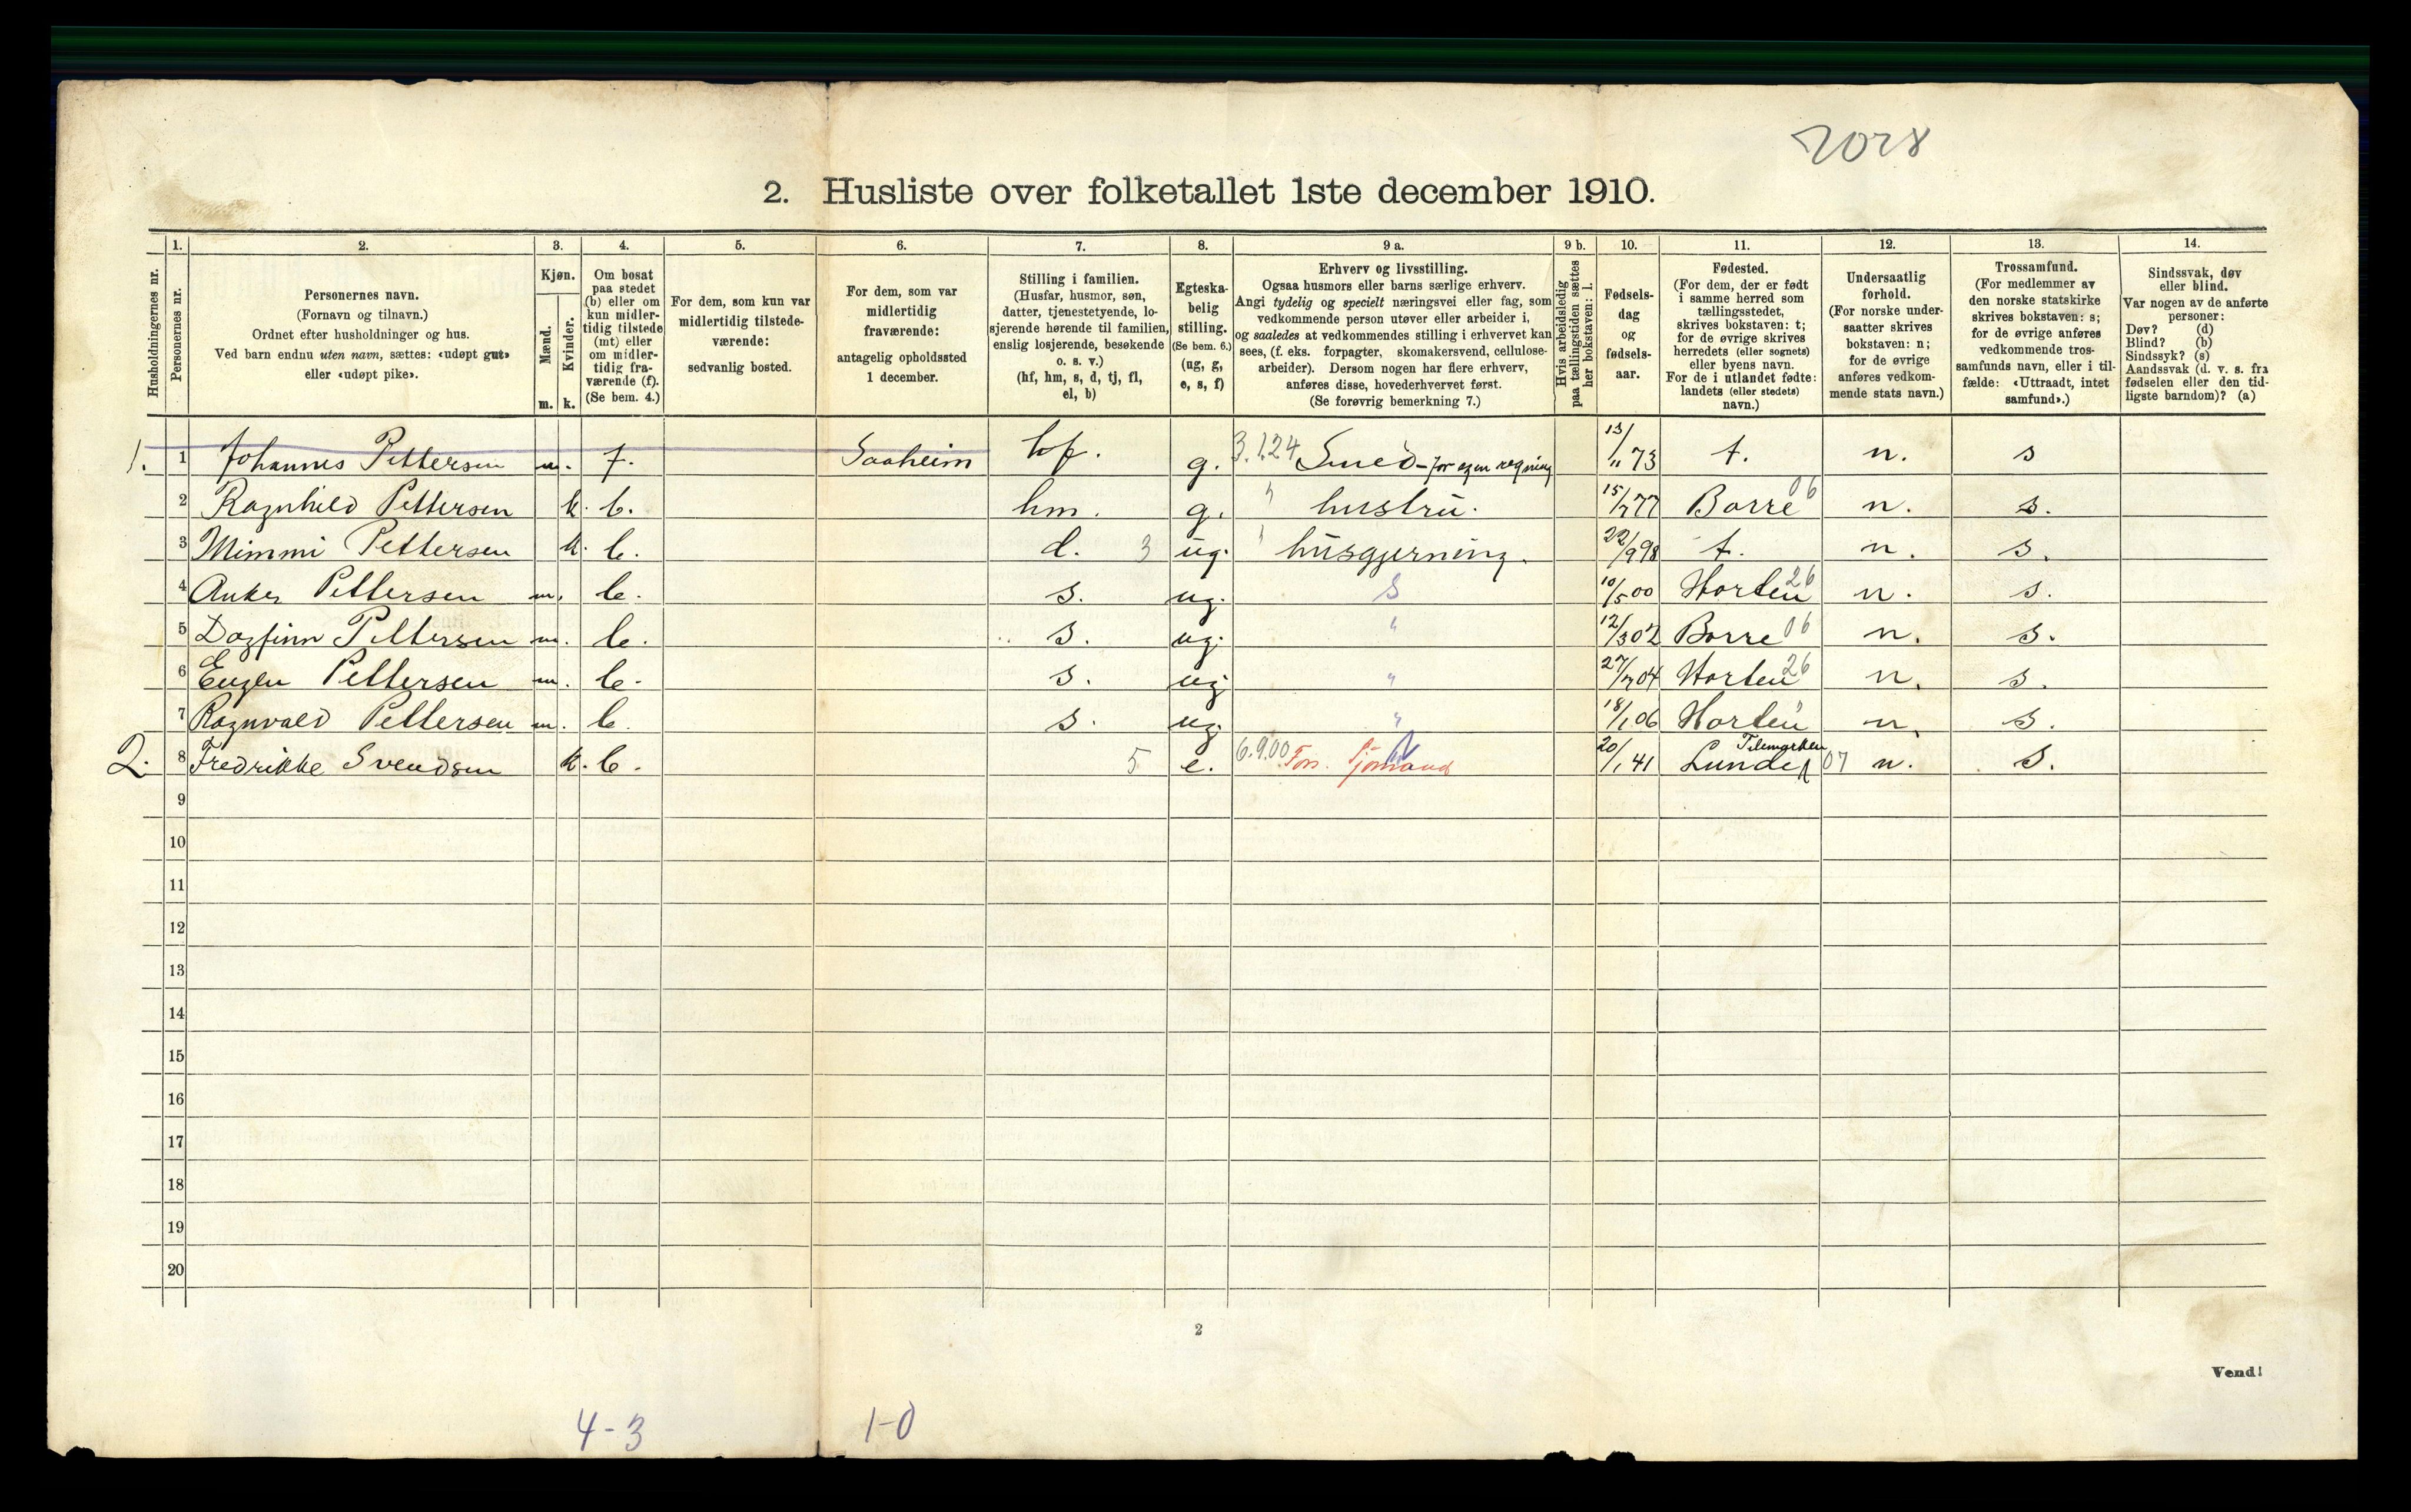 2028
2. Husliste over folketallet 1ste december 1910.
Husholdningernes nr.
1.
Personernes nr.
2.
Personernes navn.
(Fornavn og tilnavn.)
Ordnet efter husholdninger og hus.
Ved barn endnu uten navn, sættes: «udøpt gut»
eller «udøpt pike».
3.
Kjøn.
Mænd.
Kvinder.
m. k.
4.
Om bosat
paa stedet
(b) eller om
kun midler-
tidig tilstede
(mt) eller
om midler-
tidig fra-
værende (f).
(Se bem. 4.)
5.
For dem, som kun var
midlertidig tilstede-
værende:
sedvanlig bosted.
6.
For dem, som var
midlertidig
fraværende:
antagelig opholdssted
1 december.
7.
Stilling i familien.
(Husfar, husmor, søn,
datter, tjenestetyende, lo-
sjerende hørende til familien,
enslig losjerende, besøkende
o. s. v.)
(hf, hm, s, d, tj, fl,
el, b)
8.
Egteska-
belig
stilling.
(Se bem. 6.)
(ug, g,
e, s, f)
9 a.
Erhverv og livsstilling.
Ogsaa husmors eller barns særlige erhverv.
Angi tydelig og specielt næringsvei eller fag, som
vedkommende person utøver eller arbeider i,
og saaledes at vedkommendes stilling i erhvervet kan
sees, (f. eks. forpagter, skomakersvend, cellulose-
arbeider). Dersom nogen har flere erhverv,
anføres disse, hovederhvervet først.
(Se forøvrig bemerkning 7.)
9 b.
Hvis arbeidsledig
paa tællingstiden sættes
her bokstaven: l.
10.
Fødsels-
dag
og
fødsels-
aar.
11.
Fødested.
(For dem, der er født
i samme herred som
tællingsstedet,
skrives bokstaven: t;
for de øvrige skrives
herredets (eller sognets)
eller byens navn.
For de i utlandet fødte:
landets (eller stedets)
navn.)
12.
Undersaatlig
forhold.
(For norske under-
saatter skrives
bokstaven: n;
for de øvrige
anføres vedkom-
mende stats navn.)
13.
Trossamfund.
(For medlemmer av
den norske statskirke
skrives bokstaven: s;
for de øvrige anføres
vedkommende tros-
samfunds navn, eller i til-
fælde: «Uttraadt, intet
samfund».)
14.
Sindssvak, døv
eller blind.
Var nogen av de anførte
personer:
Døv? (d)
Blind? (b)
Sindssyk? (s)
Aandssvak (d. v. s. fra
fødselen eller den tid-
ligste barndom)? (a)
1. 1 Johannes Pettersen m. f. Saaheim hf. g. 3.124 Smed - for egen regning 13/11 73 t. n. s
2 Ragnhild Pettersen k. b. hm. g. " hustru. 15/7 77 Borre 06 n. s.
3 Mimmi Pettersen k. b. d. 3 ug. " husgjerning. 22/9 98 t. n. s.
4 Anker Pettersen m. b. s. ug. S 10/5 00 Horten 26 n. s.
5 Dagfinn Pettersen m. b. s. ug. " 12/3 02 Borre 06 n. s.
6 Eugen Pettersen m. b. s. ug. " 27/7 04 Horten 26 n. s.
7 Ragnvald Pettersen m. b. s. ug. " 18/1 06 Horten " n. s.
2. 8 Fredrikke Svendsen k. b. 5 e. 6.900 Fors. Sjömand 20/1 41 Lunde Telemarken 07 n. s.
9
10
11
12
13
14
15
16
17
18
19
20
2
Vend!
4-3 1-0